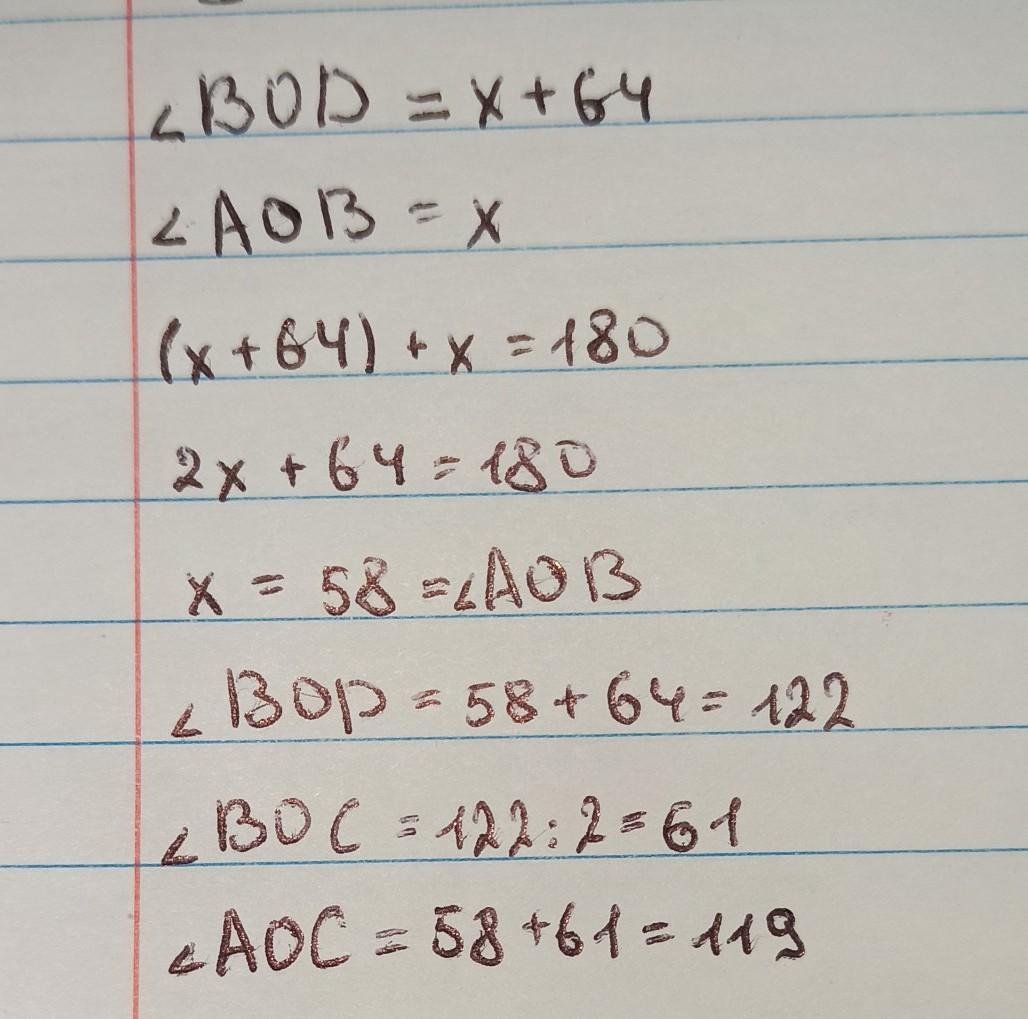 ∠BOD = x + 64
∠AOB = x
(x + 64) + x = 180
2x + 64 = 180
x = 58 = ∠AOB
∠BOD = 58 + 64 = 122
∠BOC = 122 : 2 = 61
∠AOC = 58 + 61 = 119